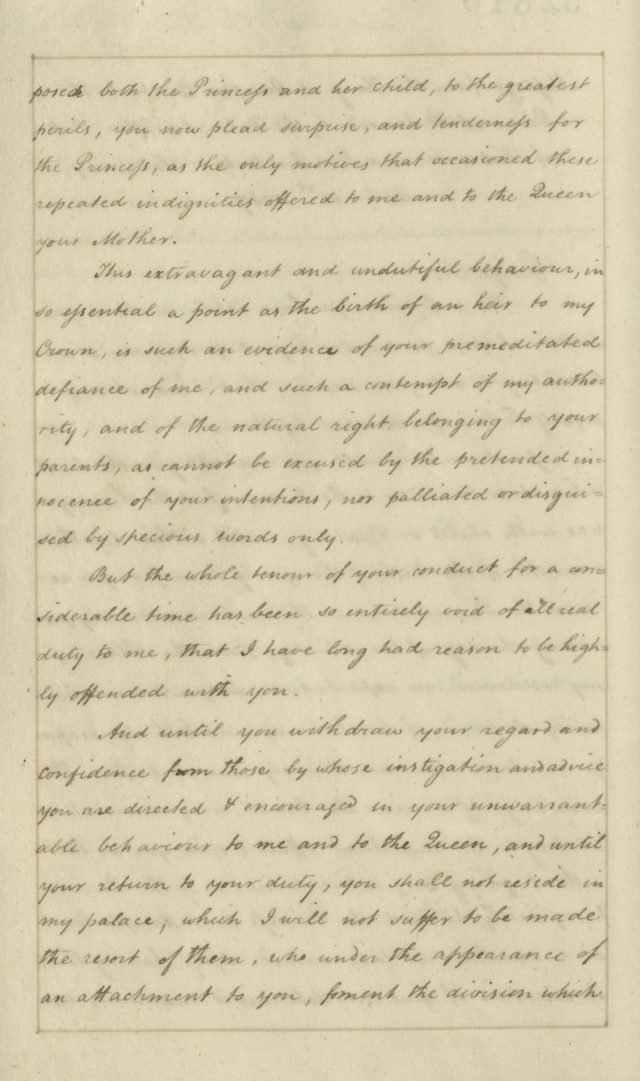 posed both the Princess and her child, to the greatest
perils, you now plead surprise, and tenderness for
the Princess, as the only motives that occasioned these
repeated indignities offered to me and to the Queen
your Mother.
This extravagant and undutiful behaviour, in
so essential a point as the birth of an heir to my
Crown, is such an evidence of your premeditated
defiance of me, and such a contempt of my autho=
rity, and of the natural right belonging to your
parents, as cannot be excused by the pretended in=
nocence of your intentions, nor palliated or disgui=
sed by specious words only.
But the whole tenour of your conduct for a con=
siderable time has been so entirely void of all real
duty to me, that I have long had reason to be high=
ly offended with you.
And until you withdraw your regard and
confidence from those by whose instigation and advice
you are directed & encouraged in your unwarrant=
able behaviour to me and to the Queen, and until
your return to your duty, you shall not reside in
my palace, which I will not suffer to be made
the resort of them, who under the appearance of
an attachment to you, foment the division which